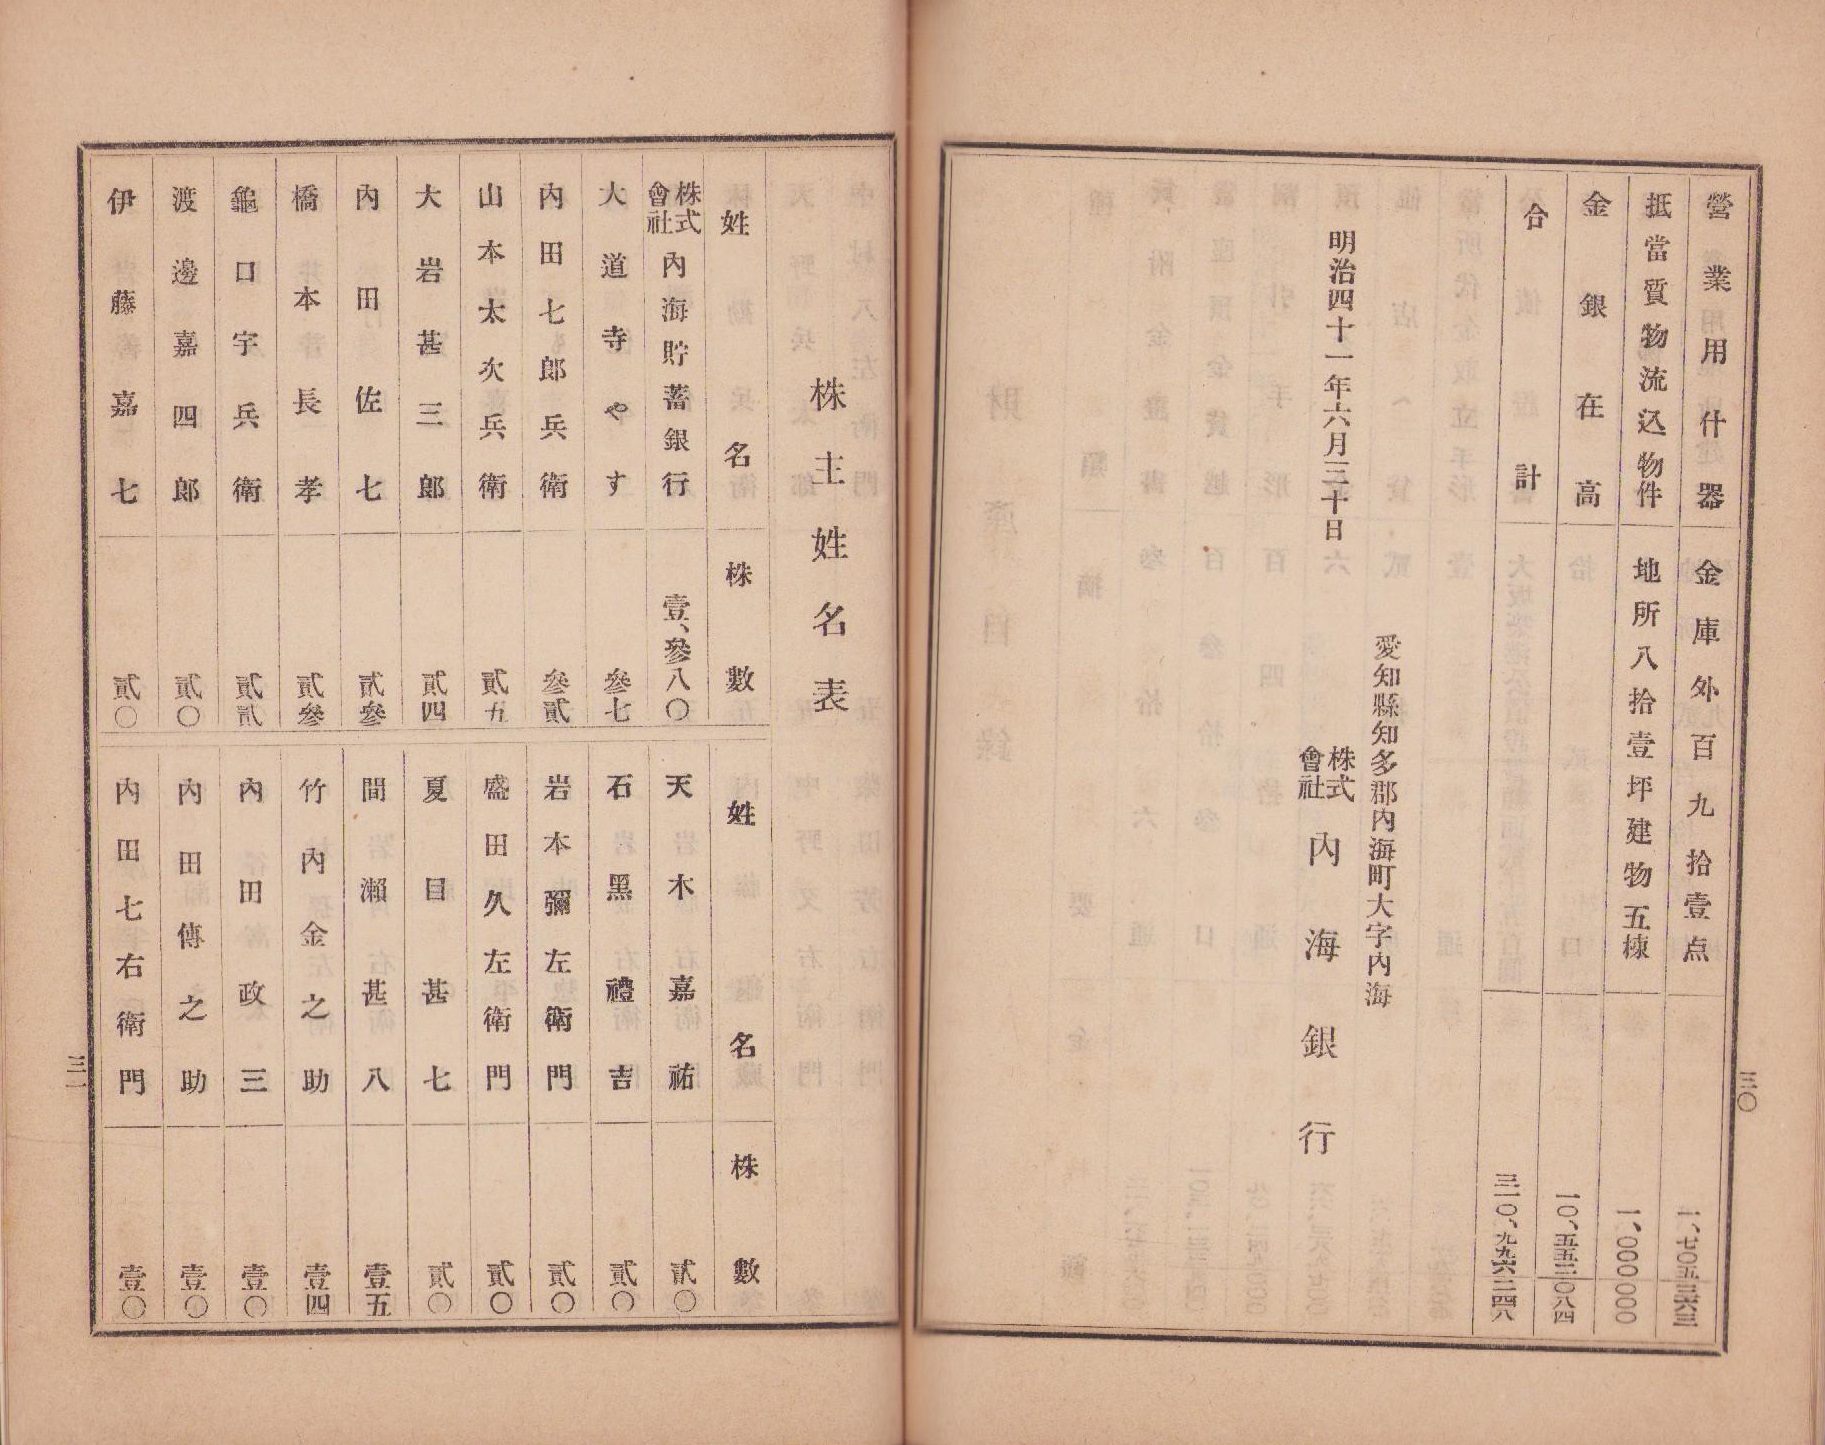 營業用什器 金庫外百九拾壹点 一、七〇五三六三
抵當質物流込物件 地所八拾壹坪建物五棟 一、〇〇〇〇〇〇
金銀在高 一〇、五五三〇八四
合計 三一〇、九九六二四八
明治四十一年六月三十日
愛知縣知多郡內海町大字內海
株式會社 內海銀行
三〇
株主姓名表
姓名 株數
株式會社內海貯蓄銀行 壹、參八〇
大道寺やす 參七
內田七郎兵衛 參貳
山本太次兵衛 貳五
大岩甚三郎 貳四
內田佐七 貳參
橋本長孝 貳參
龜口宇兵衛 貳貳
渡邊嘉四郎 貳〇
伊藤嘉七 貳〇
姓名 株數
天木嘉祐 貳〇
石黑禮吉 貳〇
岩本彌左衛門 貳〇
盛田久左衛門 貳〇
夏目甚七 貳〇
間瀨甚八 壹五
竹內金之助 壹四
內田政三 壹〇
內田傳之助 壹〇
內田七右衛門 壹〇
三一